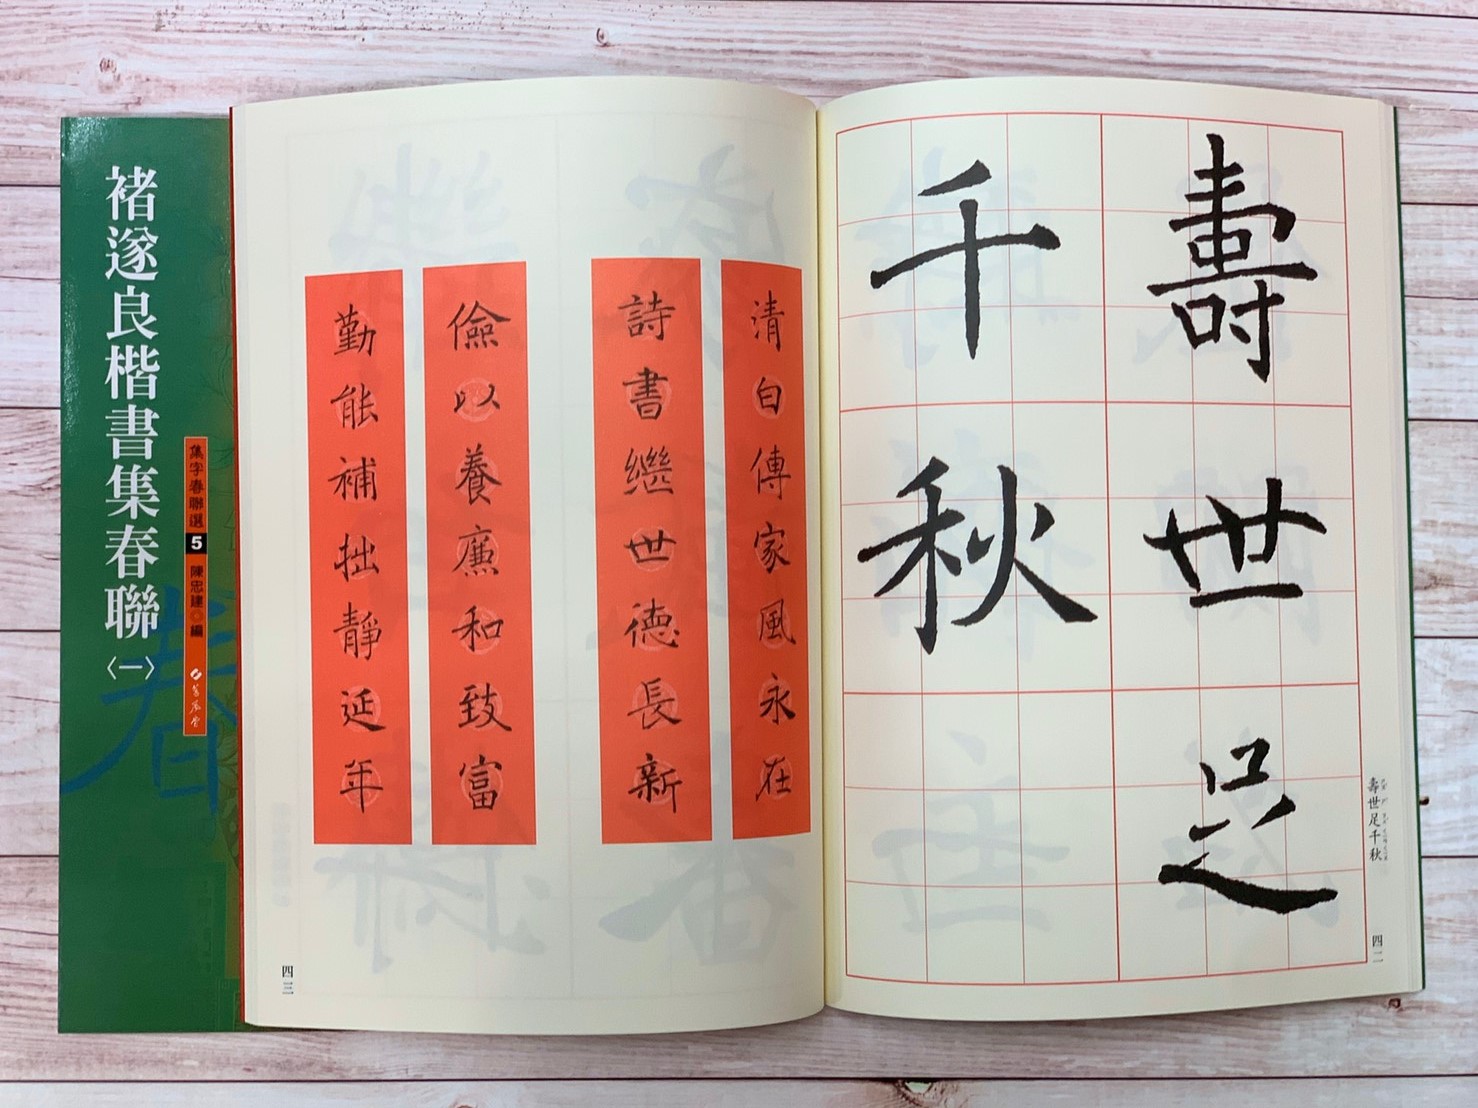 褚遂良楷書集春聯〈一〉
集字春聯選 5 陳忠建◎編
蕙風堂
壽世足
千秋
壽世足千秋
四二
清白傳家風永在
詩書繼世德長新
儉以養廉和致富
勤能補拙靜延年
四三